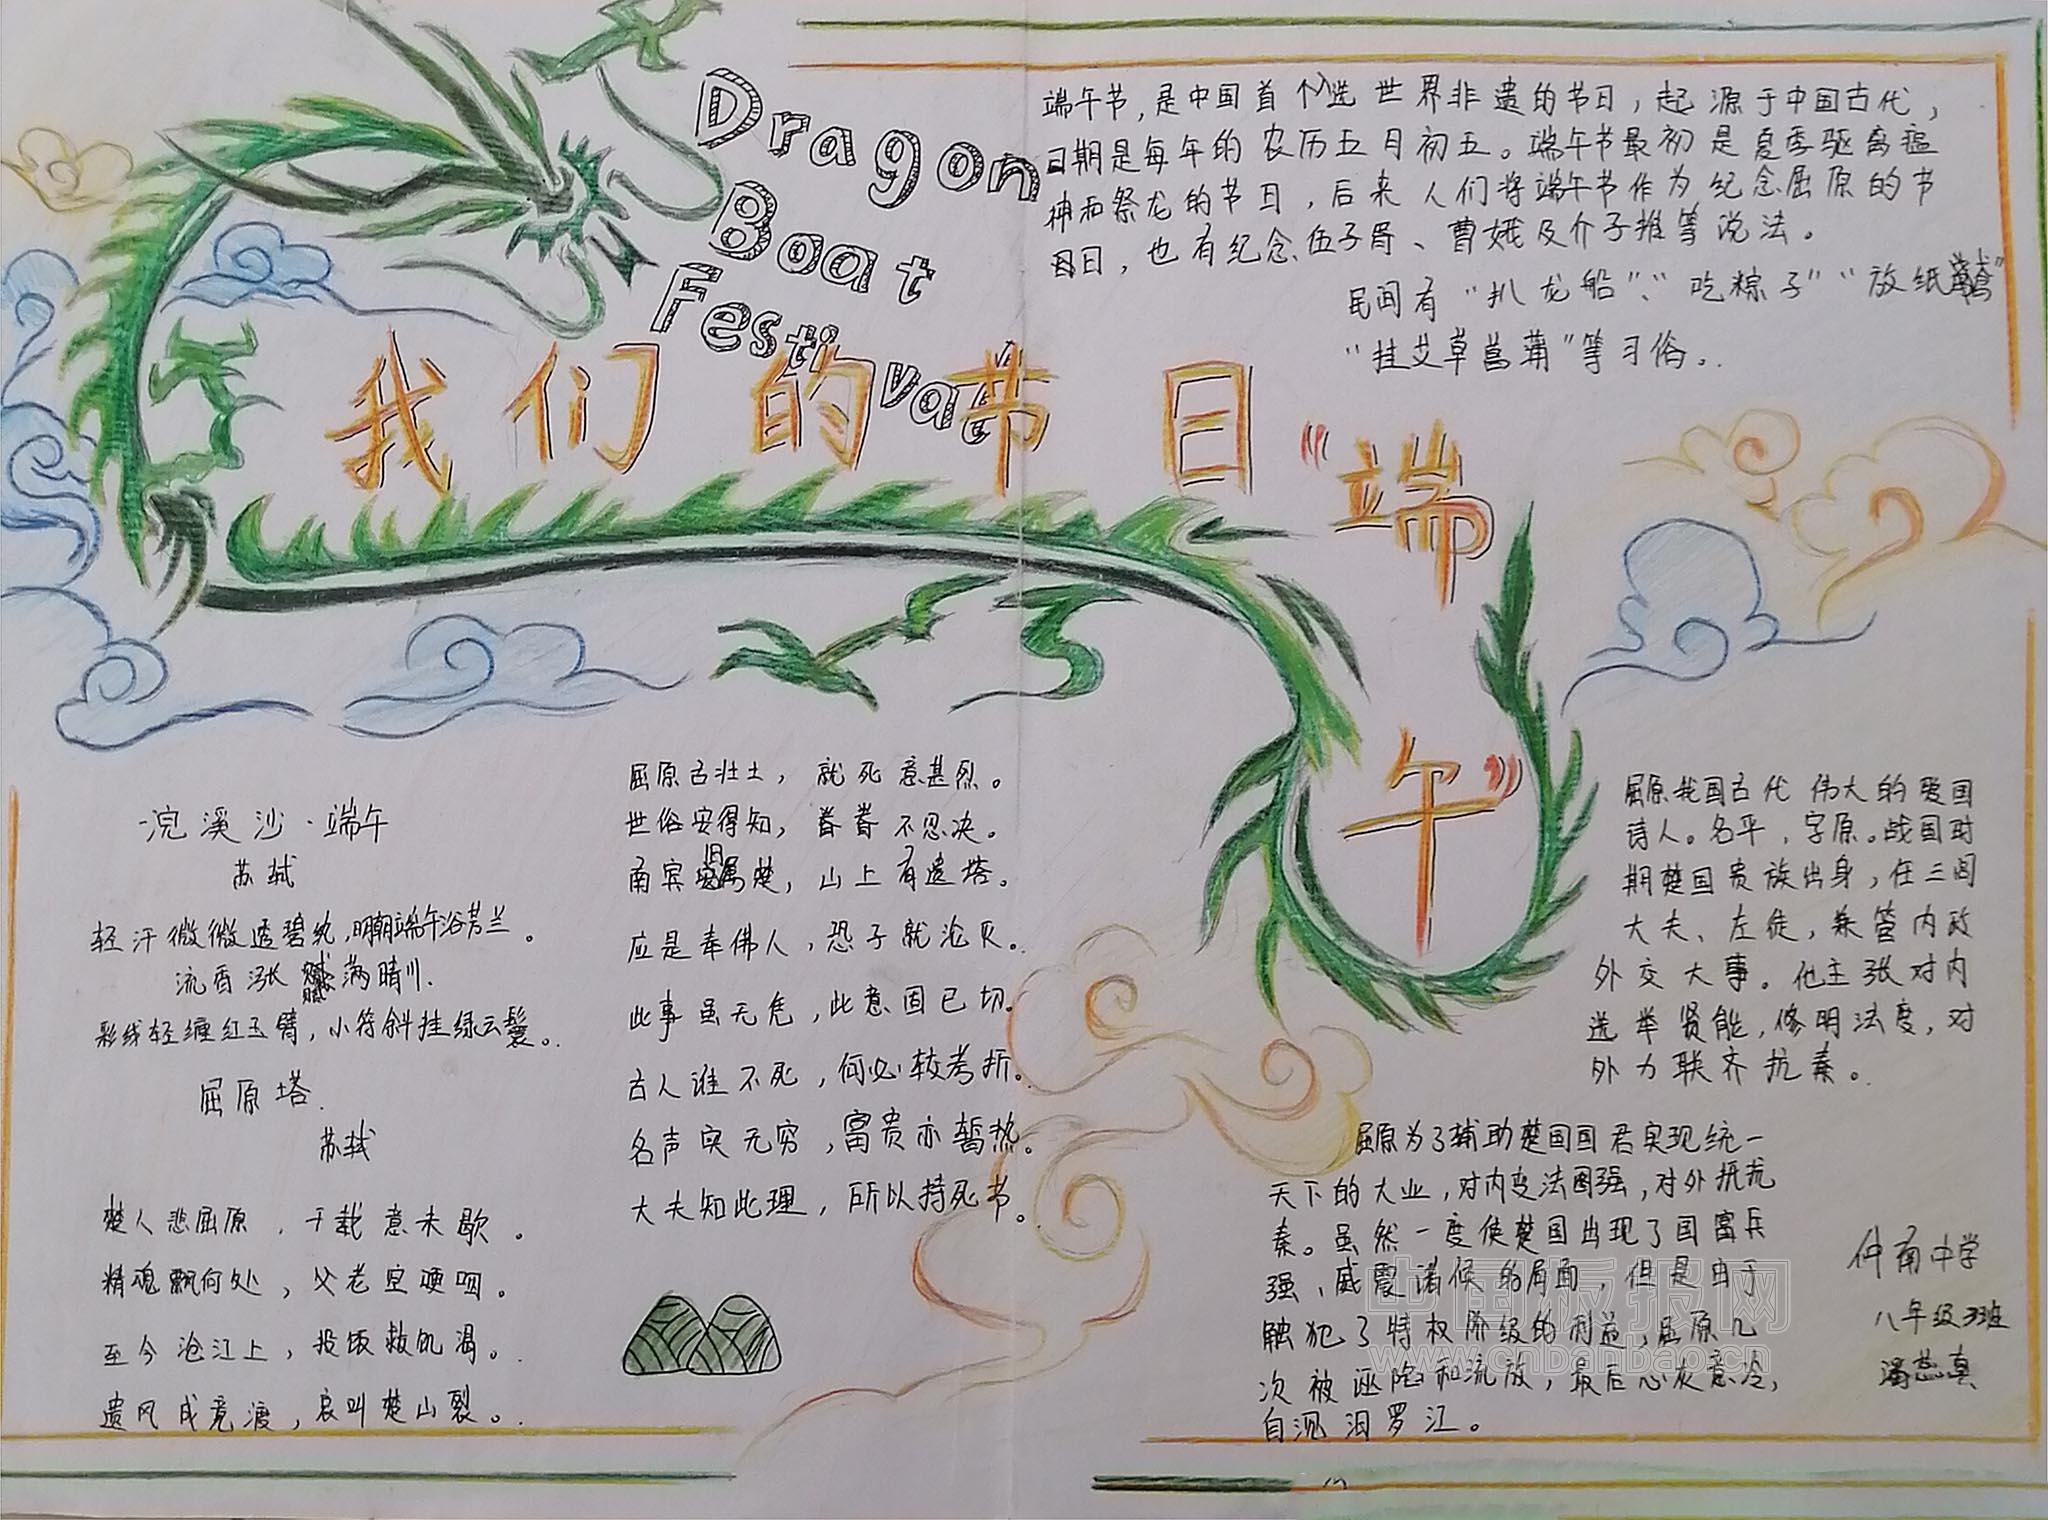 Dragon
Boat
Festival
我们的节日"端
午"
端午节，是中国首个入选世界非遗的节日，起源于中国古代，
日期是每年的农历五月初五。端午节最初是夏季驱离瘟
神和祭龙的节日，后来人们将端午节作为纪念屈原的节
日，也有纪念伍子胥、曹娥及介子推等说法。
民间有"扒龙船"、"吃粽子""放纸鸢"
"挂艾草菖蒲"等习俗。
浣溪沙·端午
苏轼
轻汗微微透碧纨，明朝端午浴芳兰。
流香涨腻满晴川.
彩线轻缠红玉臂，小符斜挂绿云鬟。
屈原塔.
苏轼
楚人悲屈原，千载意未歇。
精魂飘何处，父老空哽咽。
至今沧江上，投饭救饥渴。
遗风成竞渡，哀叫楚山裂。
屈原古壮士，就死意甚烈。
世俗安得知，眷眷不忍决。
南宾旧属楚，山上有遗塔。
应是奉佛人，恐子就沦灭。
此事虽无凭，此意固已切。
古人谁不死，何必较考折。
名声实无穷，富贵亦暂热。
大夫知此理，所以持死节。
屈原我国古代伟大的爱国
诗人。名平，字原。战国时
期楚国贵族出身，任三闾
大夫、左徒，兼管内政
外交大事。他主张对内
选举贤能，修明法度，对
外力联齐抗秦。
屈原为了辅助楚国国君实现统一
天下的大业，对内变法图强，对外抵抗
秦。虽然一度使楚国出现了国富兵
强、威震诸候的局面，但是由于
触犯了特权阶级的利益，屈原几
次被诬陷和流放，最后心灰意冷，
自沉汨罗江。
仲南中学
八年级3班
中国板报网
www.cnbanbao.cn